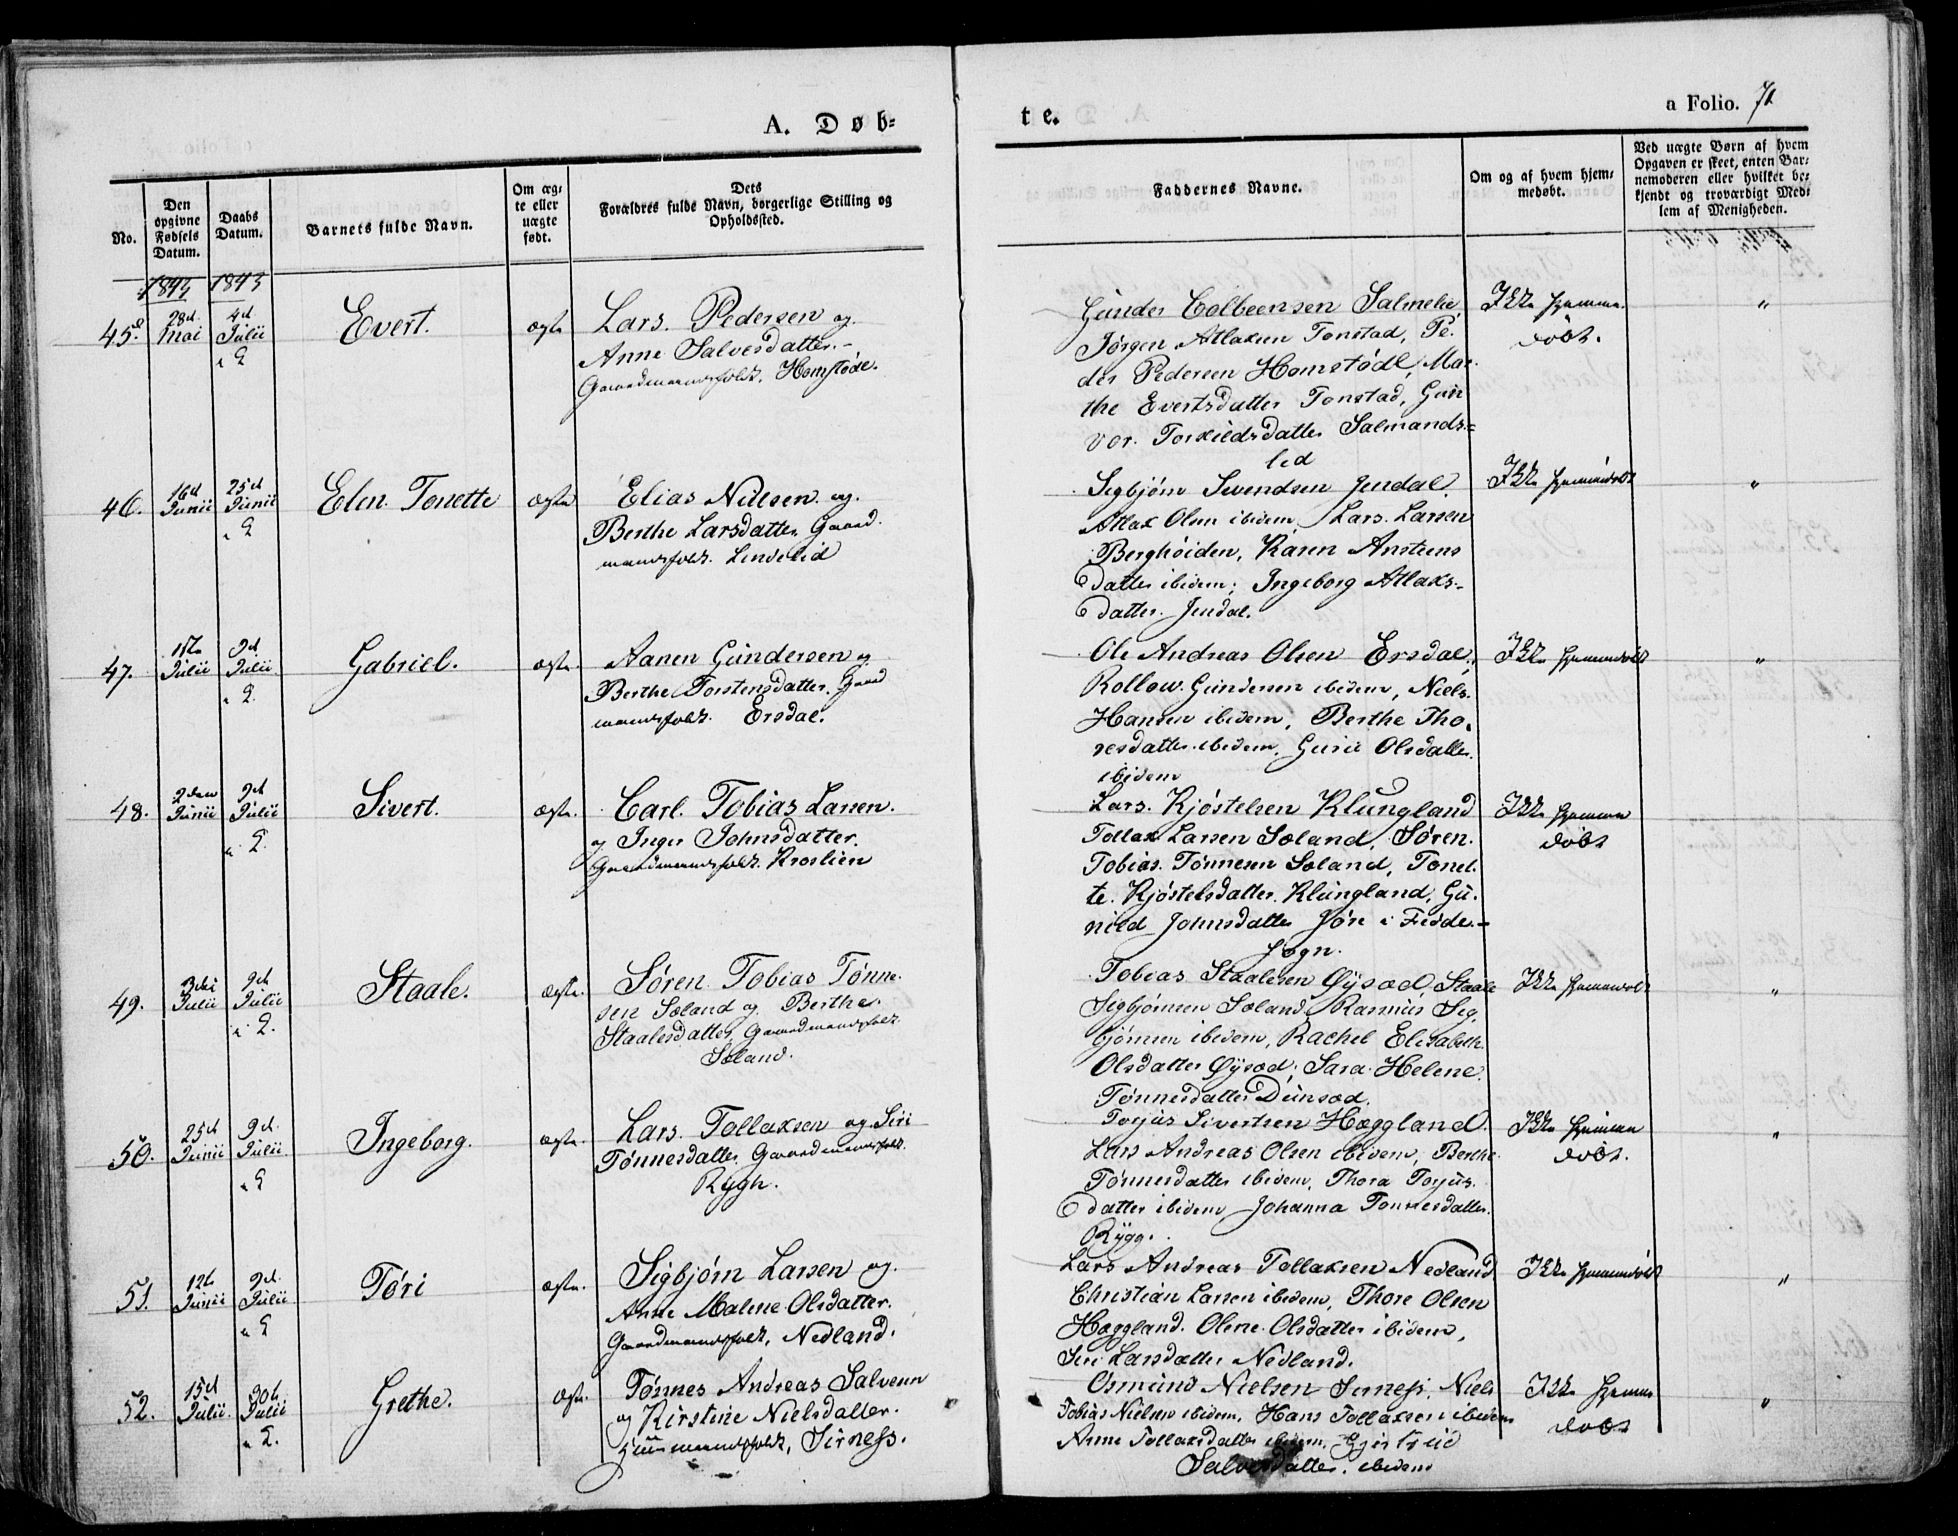 A. Døb-
te.
a Folio. 71
No.
Den opgivne Fødsels Datum.
Daabs Datum.
Barnets fulde Navn.
Om ægte eller uægte født.
Dets
Forældres fulde Navn, borgerlige Stilling og
Opholdssted.
Faddernes Navne.
Om og af hvem hjem-
medøbt.
Ved uægte Børn af hvem
Opgaven er skeet, enten Bar-
nemoderen eller hvilket be-
kjendt og troværdigt Med-
lem af Menigheden.
1843 1843
45. 28d Mai 4d Julii Evert. ægte Lars Pedersen og
Anne Salvesdatter.
Gaardmandsfolk. Homstøde.
Gunder Colbeensen Salmelie,
Jørgen Atlaksen Tonstad, Pe-
der Pedersen Homstødl, Mar-
the Evertsdatter Tonstad, Gun
vor Torkildsdatter Salmands=
lid
Ikke hjemme
døbt. "
46. 16d Junii 25d Junii Elen Tonette ægte Elias Nielsen og
Berthe Larsdatter, Gaard
mandsfolk. Lindelid
Sigbjørn Svendsen Jendal.
Atlax Olsen ibidem, Lars Larsen
Berghøiden, Karen Anstens
datter ibidem; Ingeborg Atlaks-
datter Jendal.
Ikke hjemmedøbt "
47. 1ste Julii 9d Julii Gabriel. ægte. Aanen Gundersen og
Berthe Torstensdatter. Gaard
mandsfolk. Ersdal.
Ole Andreas Olsen Ersdal,
Rollow Gundersen ibidem, Niels
Hansen ibidem, Berthe Tho-
resdatter ibidem, Guri Olsdatter
ibidem
Ikke hjemmedøbt "
48. 2den Junii 9d Julii Sivert. ægte. Carl Tobias Larsen
og Inger Johnsdatter.
Gaardmandsfolk Kroslien
Lars Kjøstelsen Klungland
Tollak Larsen Soland, Søren
Tobias Tønnesen Soland, Tonet-
te Kjøstelsdatter Klungland, Gu-
nild Johnsdatter Jøre i Fedde-
Sogn.
Ikke hjemme
døbt "
49. 3die Julii 9d Julii Staale. ægte. Søren Tobias Tønne-
sen Soland og Berthe
Staalesdatter, Gaardmandsfolk
Soland.
Tobias Staalesen Øysæd, Staale
Sigbjørnsen Soland, Rasmus Sig
bjørnsen ibidem, Rachel Elisabeth
Olsdatter Øysæd, Sara Helene
Tønnesdatter Dunsæd.
Ikke hjemmedøbt "
50. 25d Junii 9d Julii Ingeborg. ægte. Lars Tollaksen og Siri
Tønnesdatter Gaardmandsfolk.
Rygh.
Torjus Sivertsen Hæggland.
Lars Andreas Olsen ibidem, Berthe
Tønnesdatter ibidem, Thora Torjus-
datter ibidem Johanna Tønnesdatter
Rygg.
Ikke hjemme
døbt. "
51. 12te Junii 9d Julii Tøri ægte. Sigbjørn Larsen og
Anne Malene Olsdatter.
Gaardmandsfolk, Nedland.
Lars Andreas Tollaksen Nedland
Christian Larsen ibidem, Thore Olsen
Hæggland. Olene Olsdatter ibidem,
Siri Larsdatter Nedland.
Ikke hjemmedøbt "
52. 15d Julii. 30te Julii Grethe. ægte. Tønnes Andreas Salvesen
og Kirstine Nielsdatter.
Huusmandsfolk, Sirness.
Osmund Nielsen Sirness, Niels
Tobias Nielsen ibidem, Hans Tollaksen ibidem
Anne Tollaksdatter ibidem, Gjertrud
Salvesdatter. ibidem
Ikke hjemme
døbt "